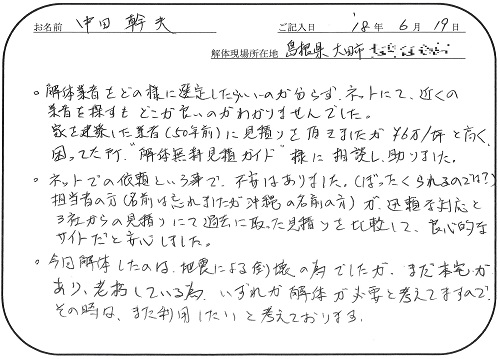 お名前 中田 幹夫 ご記入日 '18年 6月 19日
解体現場所在地 島根県 大田市
。解体業者をどの様に選定したらいいのか分らず、ネットにて、近くの
業者を探すも どこが良いのかわかりませんでした。
家を建築した業者(50年前)に見積りを頂きましたが ¥6万/坪と高く、
困ってた所、"解体無料見積ガイド"様に相談し、助りました。
。ネットでの依頼という事で、不安はありました。(ぼったくられるのでは?)
担当者の方(名前は忘れましたが沖縄の名前の方)が、迅速な対応と
3社からの見積りにて過去に取った見積りを比較して、良心的な
サイトだと安心しました。
。今回解体したのは、地震による倒壊の為でしたが、まだ本宅が
あり、老朽している為、いずれか解体が必要と考えてますので
その時は、また利用したいと考えております。